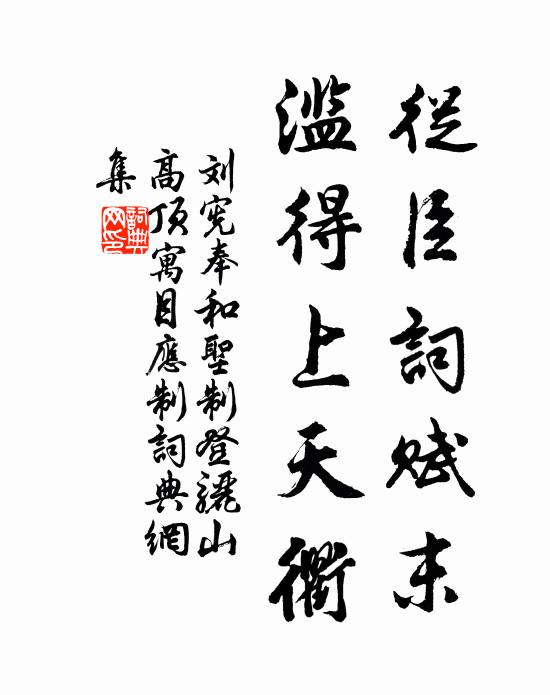 從臣詞賦末
濫得上天衢
刘宪奉和聖制登驪山
高頂寓目應制詞典網
集
詞典網印